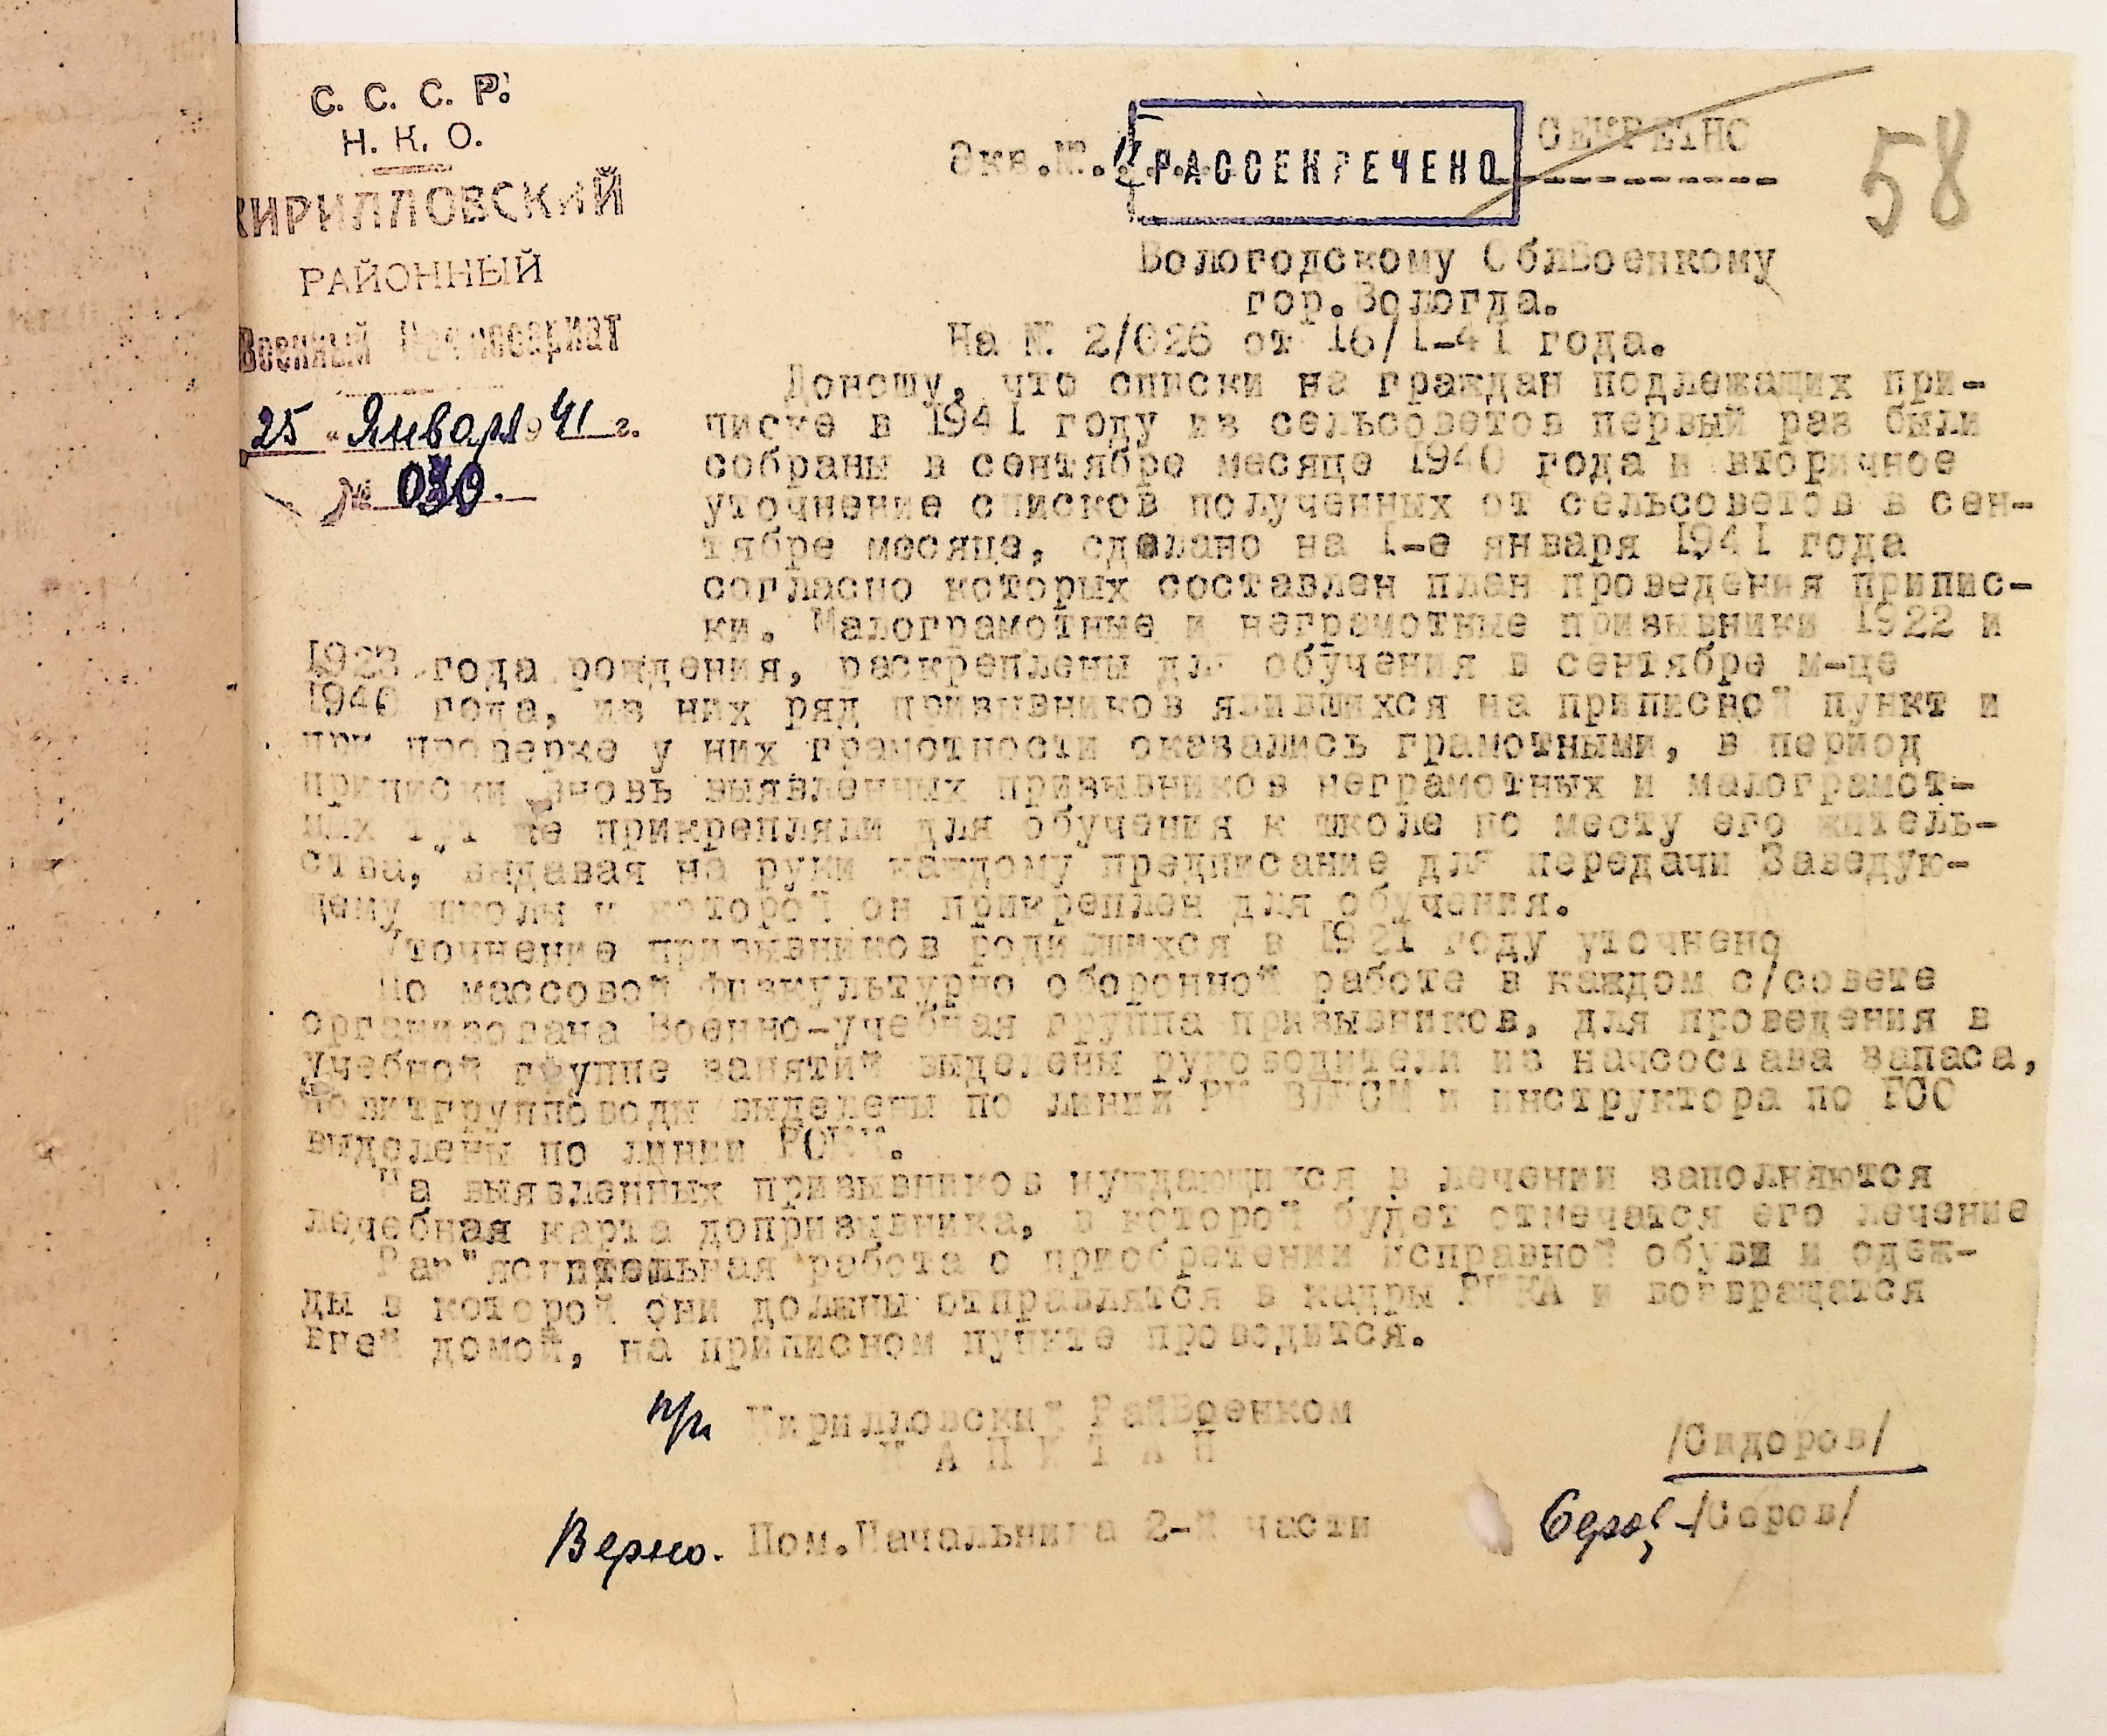 С. С. С. Р.
Н. К. О.
КИРИЛЛОВСКИЙ
РАЙОННЫЙ
Военный Комиссариат
25 " Января 1941 г.
№ 030.
Экз.№.
РАССЕКРЕЧЕНО
СЕКРЕТНО
58
Вологодскому ОблВоенкому
гор.Вологда.
На № 2/026 от 16/I-41 года.
Доношу, что списки на граждан подлежащих при-
писке в 1941 году из сельсоветов первый раз были
собраны в сентябре месяце 1940 года и вторичное
уточнение списков полученных от сельсоветов в сен-
тябре месяце, сделано на I-е января 1941 года
согласно которых составлен план проведения припис-
ки. Малограмотные и неграмотные призывники 1922 и
1923 года рождения, раскреплены для обучения в сентябре м-це
1940 года, из них ряд призывников явившихся на приписной пункт и
при проверке у них грамотности оказались грамотными, в период
приписки вновь выявленных призывников неграмотных и малограмот-
ных тут же прикрепляли для обучения к школе по месту его житель-
ства, выдавая на руки каждому предписание для передачи Заведую-
щему школы к которой он прикреплен для обучения.
Уточнение призывников родившихся в 1921 году уточнено
По массовой физкультурно оборонной работе в каждом с/совете
организована Военно-учебная группа призывников, для проведения в
учебной группе занятий выделены руководители из начсостава запаса,
политгрупповоды выделены по линии РК ВЛКСМ и инструктора по ГСО
выделены по линии РОКК.
На выявленных призывников нуждающихся в лечении заполняются
лечебная карта допризывника, в которой будет отмечатся его лечение
Раз"яснительная работа о приобретении исправной обуви и одеж-
ды в которой они должны отправлятся в кадры РККА и возвращатся
вней домой, на приписном пункте проводится.
п/п Кирилловский РайВоенком
К А П И Т А Н
/Сидоров/
Верно. Пом.Начальника 2-й части
Серов /Серов/